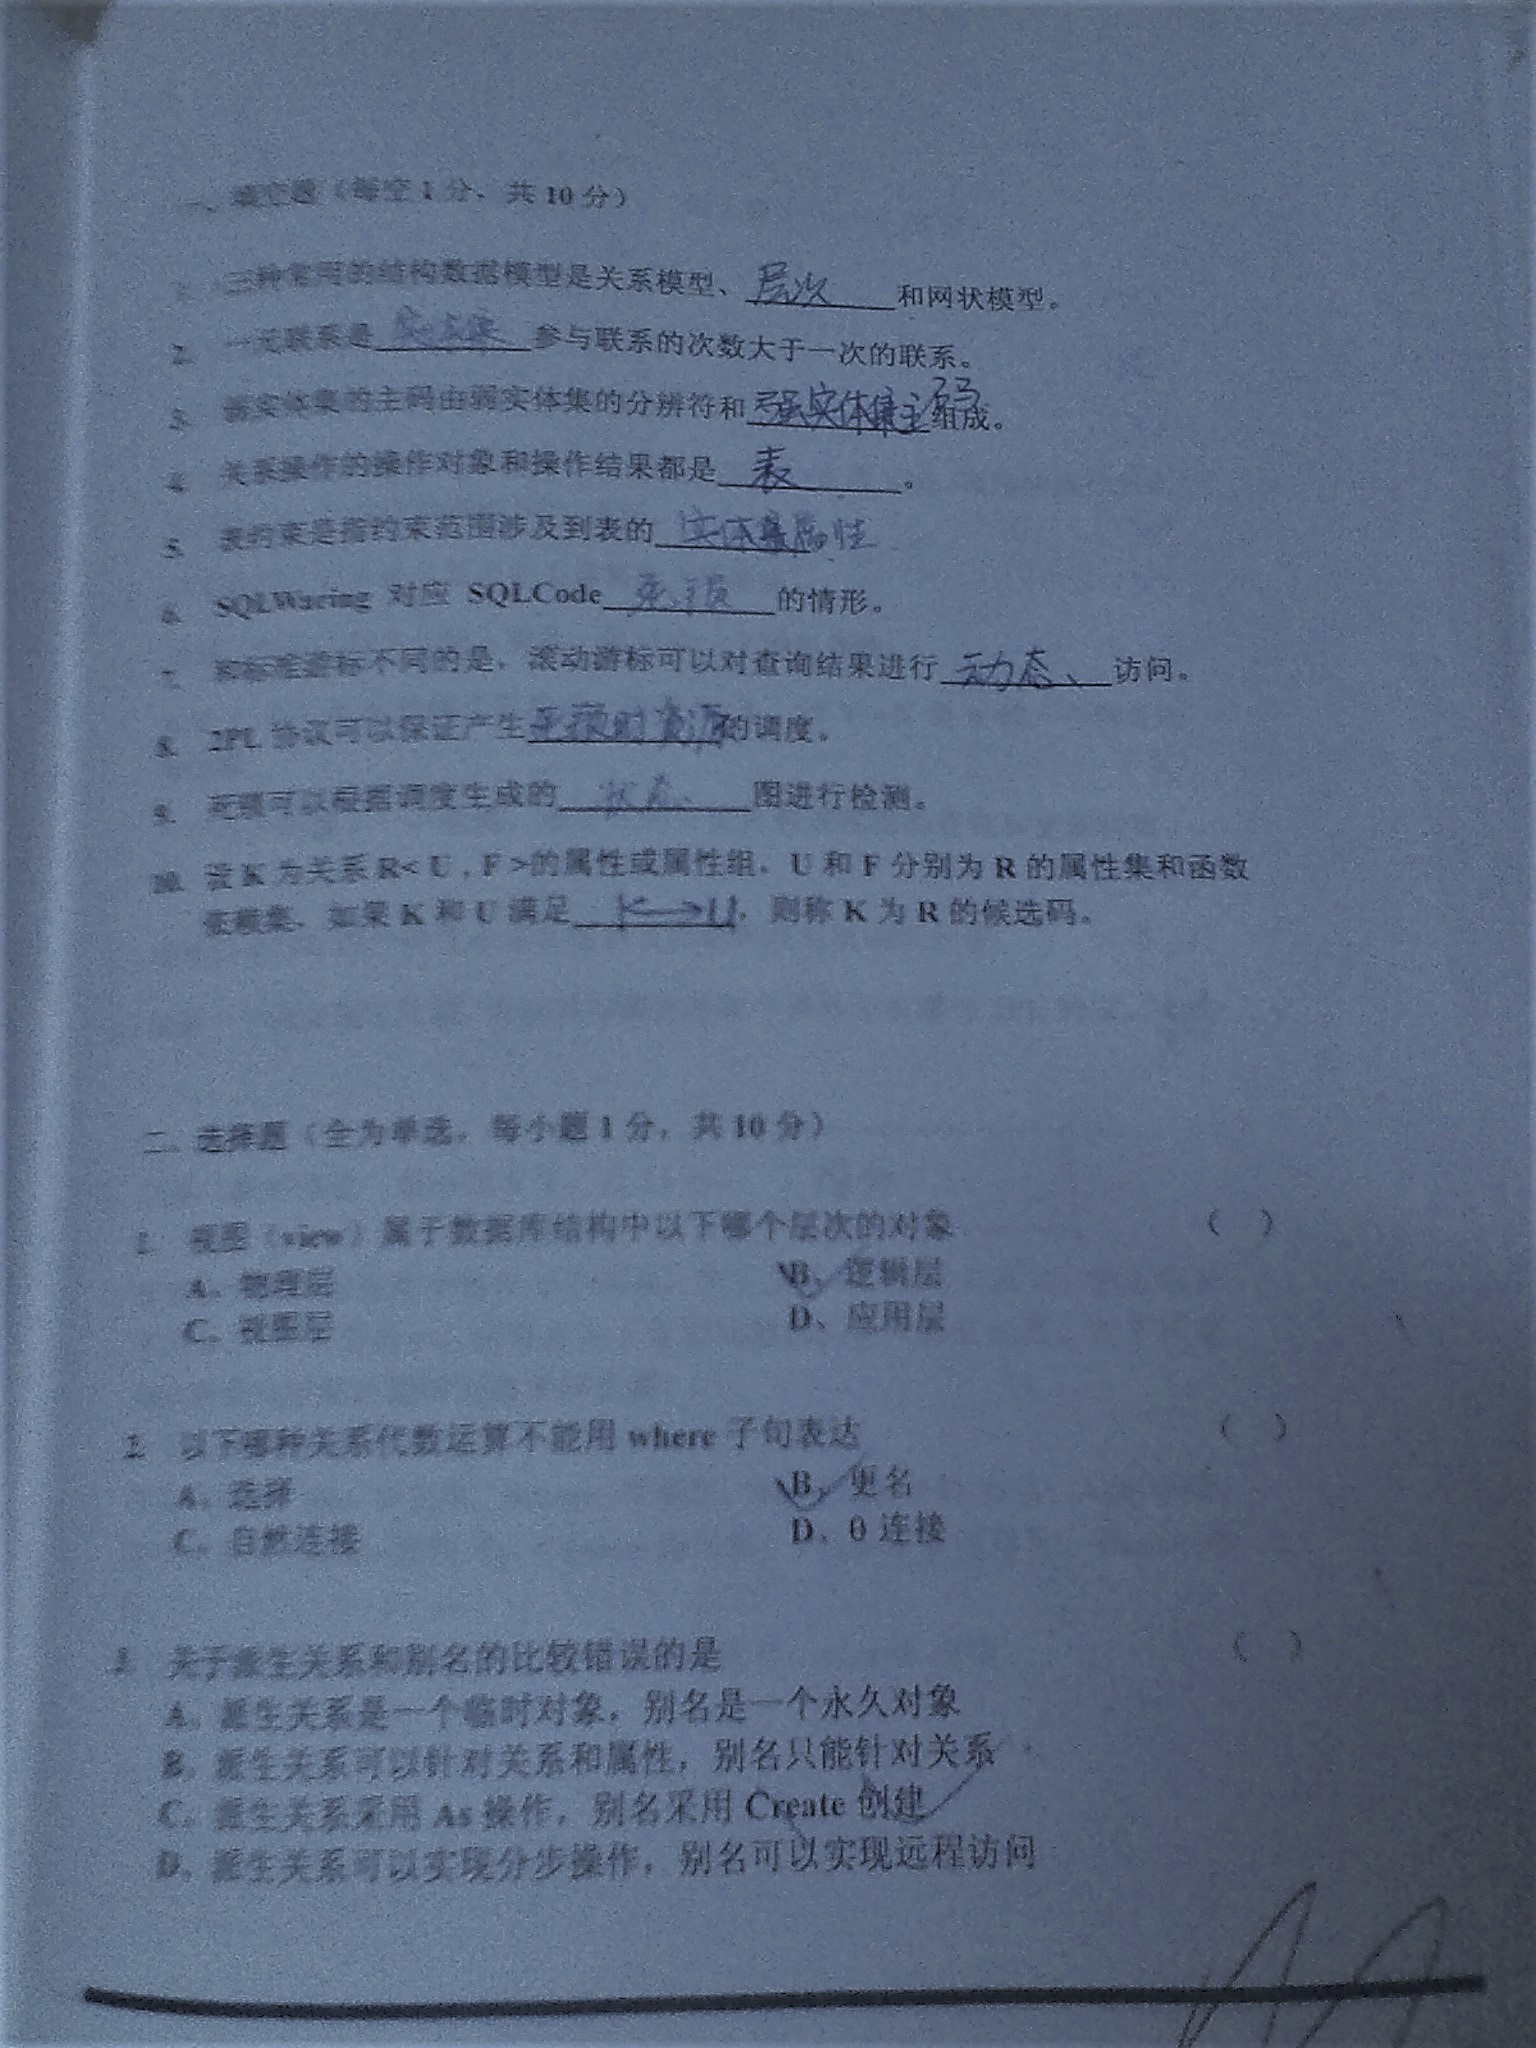 一、填空题（每空 1 分，共 10 分）
1. 三种常用的结构数据模型是关系模型、层次和网状模型。
2. 一元联系是 参与联系的次数大于一次的联系。
3. 弱实体集的主码由弱实体集的分辨符和强实体集主码组成。
4. 关系操作的操作对象和操作结果都是表。
5. 表约束是指约束范围涉及到表的实体集属性
6. SQLWaring 对应 SQLCode 的情形。
7. 和标准游标不同的是，滚动游标可以对查询结果进行动态、访问。
8. 2PL 协议可以保证产生 的调度。
9. 死锁可以根据调度生成的状态、图进行检测。
10. 设 K 为关系 R< U , F >的属性或属性组，U 和 F 分别为 R 的属性集和函数
依赖集，如果 K 和 U 满足 K⟷U，则称 K 为 R 的候选码。
二、选择题（全为单选，每小题 1 分，共 10 分）
1. 视图（view）属于数据库结构中以下哪个层次的对象 （ ）
A、物理层 B、逻辑层
C、视图层 D、应用层
2. 以下哪种关系代数运算不能用 where 子句表达 （ ）
A、选择 B、更名
C、自然连接 D、θ 连接
3. 关于派生关系和别名的比较错误的是 （ ）
A、派生关系是一个临时对象，别名是一个永久对象
B、派生关系可以针对关系和属性，别名只能针对关系
C、派生关系采用 As 操作，别名采用 Create 创建
D、派生关系可以实现分步操作，别名可以实现远程访问